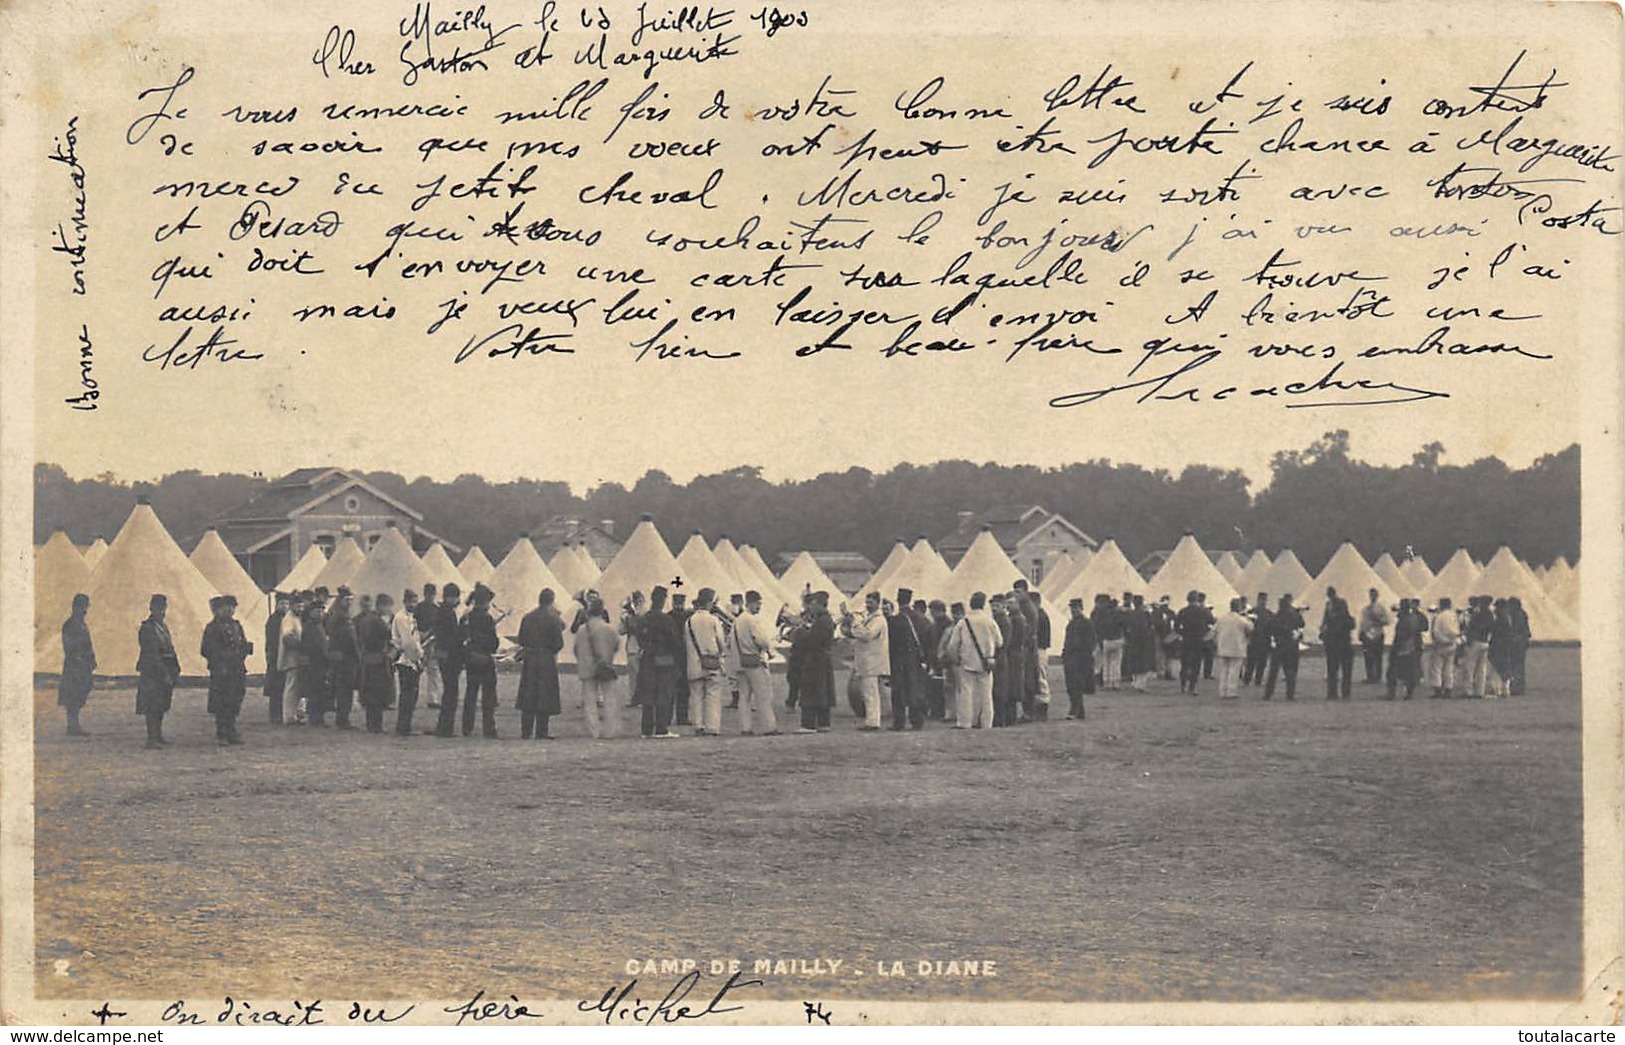 Mailly le 13 Juillet 1903
Cher Gaston et Marguerite
Je vous remercie mille fois de votre bonne lettre et je suis content
de savoir que mes voeux ont peut être porté chance à Marguerite
merci du petit cheval. Mercredi je suis sorti avec
et Pesard qui vous souhaitent le bonjour j'ai vu aussi Costa
qui doit t'envoyer une carte sur laquelle il se trouve je l'ai
aussi mais je veux lui en laisser l'envoi A bientôt une
lettre. Votre frère et beau-frère qui vous embrasse
Bonne continuation
2
CAMP DE MAILLY - LA DIANE
+ On dirait du père Michel 74
Delcampe.net
toutalacarte